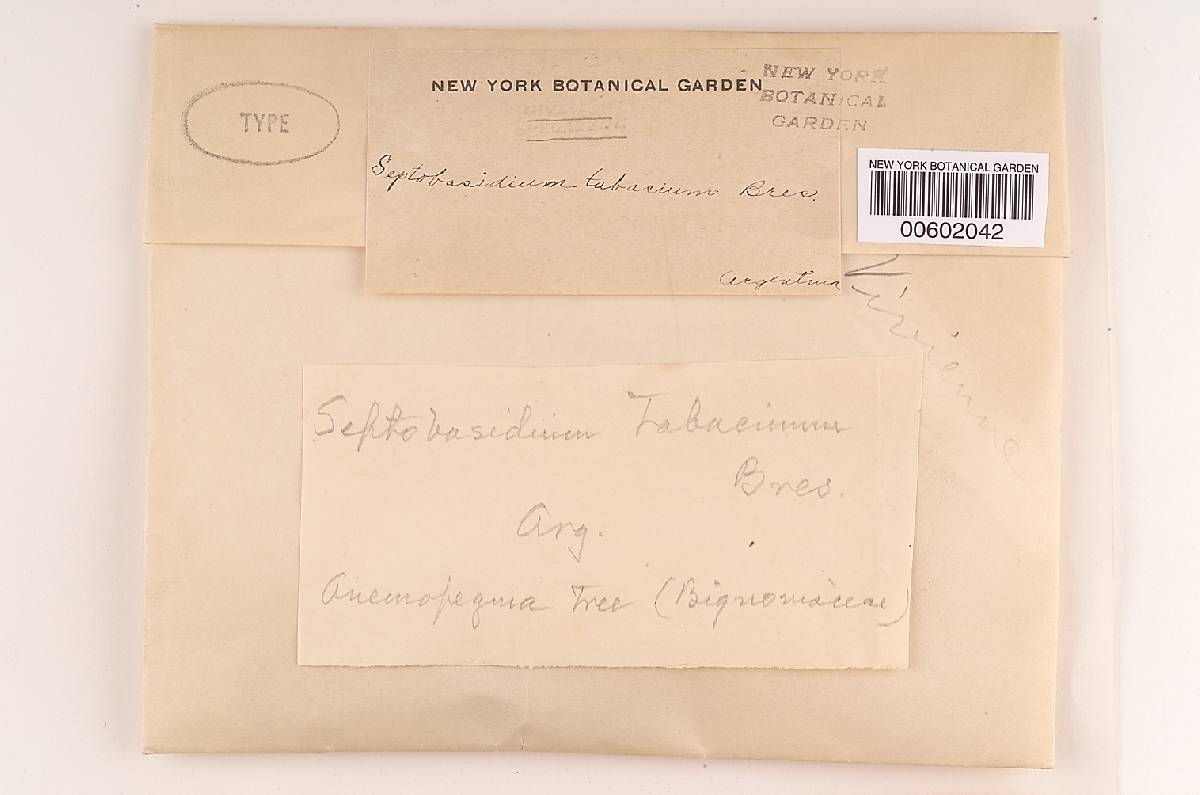 TYPE
NEW YORK BOTANICAL GARDEN
NEW YORK
BOTANICAL
GARDEN
Septobasidium tabacium Bres.
Argentina
NEW YORK BOTANICAL GARDEN
00602042
Septobasidium Tabacinum
Bres.
Arg.
Anemopegma Tree (Bignoniaceae)